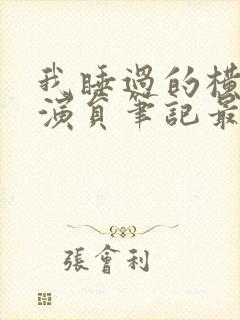 我睡過的橫
演員筆記最
張會利